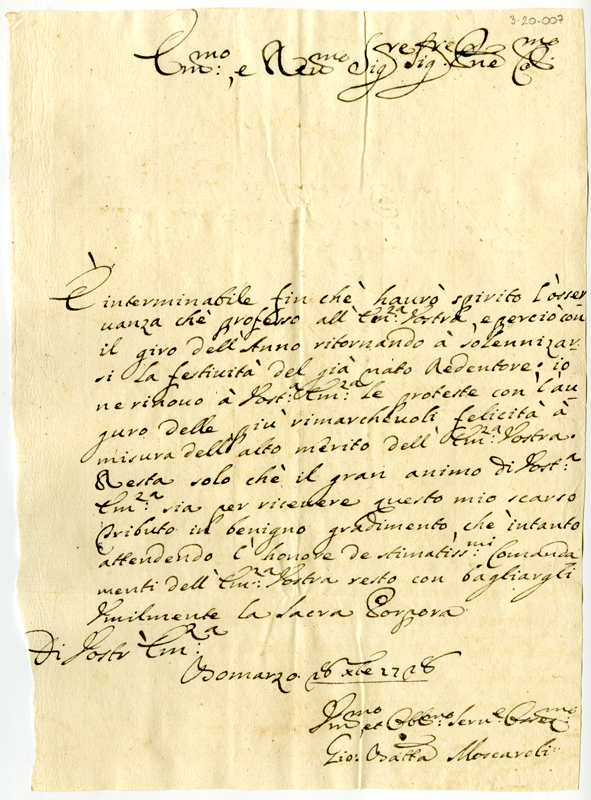 3-20-007
Em.mo, e Reu.mo Sig.re Sig.re Pne Col.mo
È interminabile fin chè haurò spirito l'osser
uanza chè professo all'Em.za Vostra, e perciò con
il giro dell'Anno ritornando à solennizar-
si la festiuità del già nato Redentore; io
ne rinouo à Vost.a Em.za le proteste con l'au
guro delle più rimarcheuoli felicità à
misura dell'alto merito dell'Em.za Vostra.
Resta solo chè il gran animo di Vost.a
Em.za sia per riceuere questo mio scarso
tributo in benigno gradimento, chè intanto
attendendo l'honore de stimatiss.mi Comanda
menti dell'Em.za Vostra resto con bagiargli
Vmilmente la Sacra Porpora
Di Vostr'Em.za
Bomarzo 18 Xbe 1718
Vm.mo et Obb.mo Seru.e
Gio: Batta Moscaroli